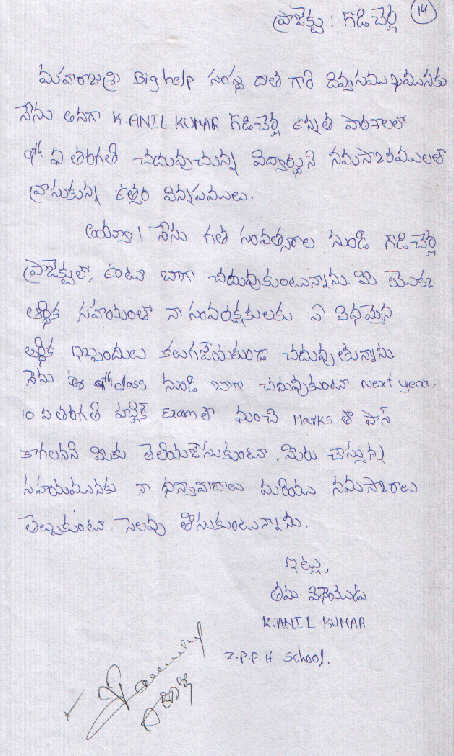 ప్రాజెక్టు : గొడిచెర్ల 14
మహారాజశ్రీ Big help సంస్థ దాత గారి దివ్యసముఖమునకు
నేను అనగా K ANIL KUMAR గొడిచెర్ల ఉన్నత పాఠశాలలో
9 వ తరగతి చదువుచున్న విద్యార్థిని నమస్కారములతో
వ్రాసుకున్న ఉత్తరం విన్నపములు.
అయ్యా! నేను గత సంవత్సరాల నుండి గొడిచెర్ల
ప్రాజెక్టులో ఉంటూ బాగా చదువుకుంటున్నాను. మీ యొక్క
ఆర్థిక సహాయంతో నా సంరక్షకులకు ఏ విధమైన
ఆర్థిక ఇబ్బందులు కలుగజేసుకుండ చదువుతున్నాను
నేను ఈ నుండి బాగా చదువుకుంటూ Next year.
10 వ తరగతి పబ్లిక్ Exam లో మంచి Marks తో పాస్
కాగలనని మీకు తెలియజేసుకుంటూ, మీరు చేస్తున్న
సహాయమునకు నా ధన్యవాదాలు మరియు నమస్కారాలు
తెల్పుకుంటూ సెలవు తీసుకుంటున్నాను.
ఇట్లు,
తమ విధేయుడు
K.ANIL KUMAR
Z.P.P.H School.